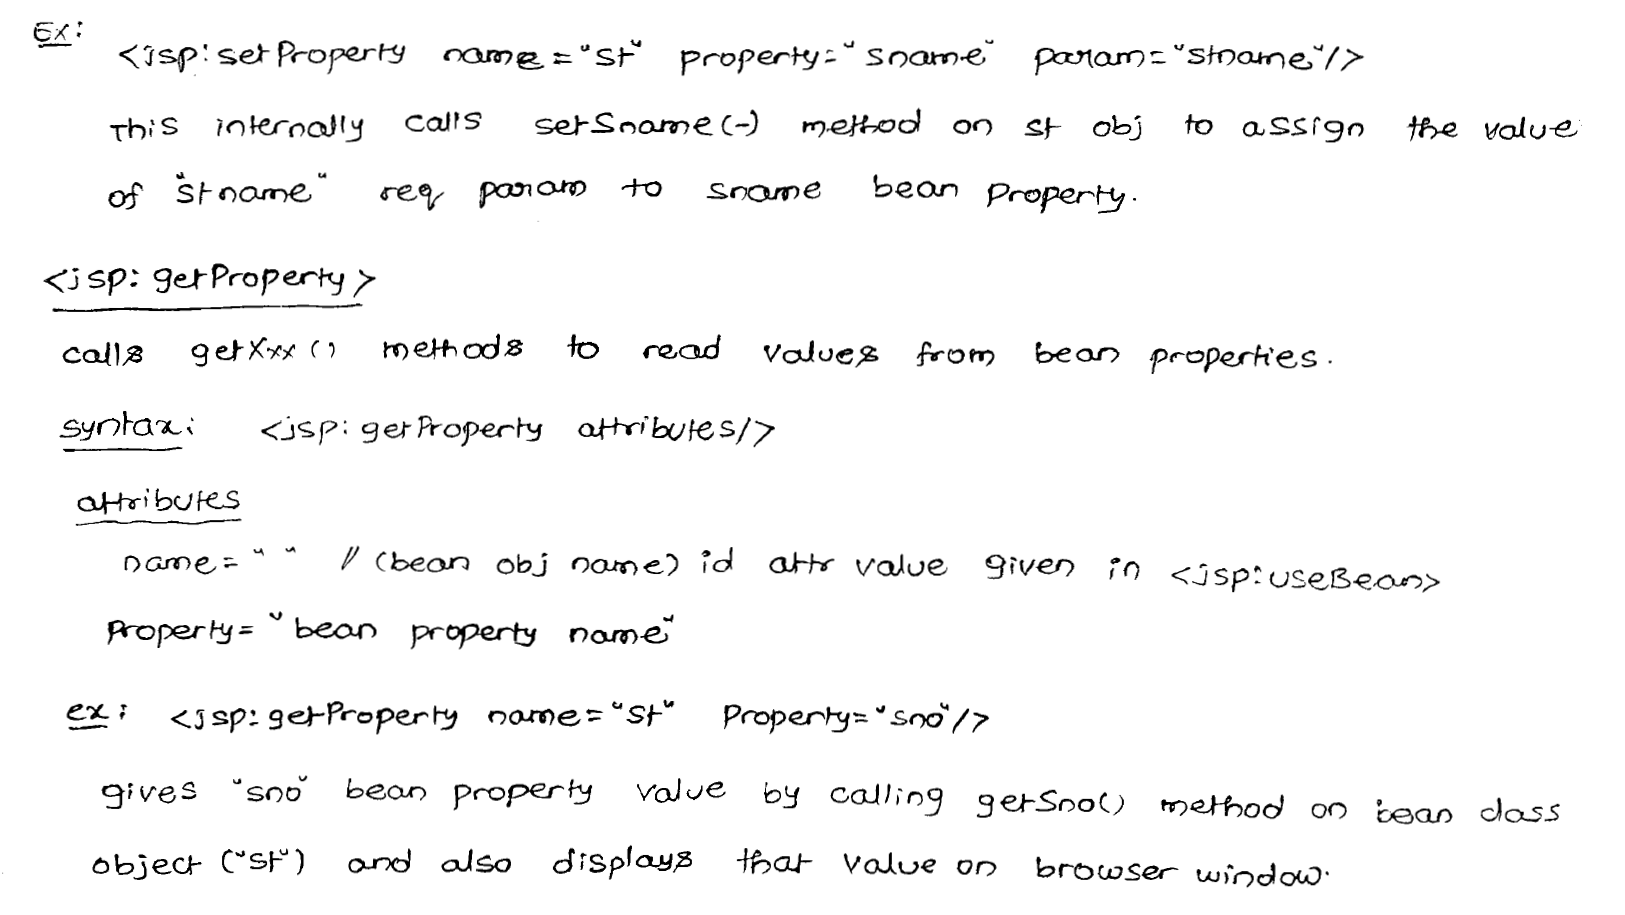 Ex:
<jsp:setProperty name="st" property="sname" param="stname"/>
This internally calls setSname(-) method on st obj to assign the value
of "stname" req param to sname bean property.
<jsp:getProperty>
calls getXxx() methods to read values from bean properties.
syntax: <jsp:getProperty attributes/>
attributes
name=" " // (bean obj name) id attr value given in <jsp:useBean>
Property="bean property name"
ex: <jsp:getProperty name="st" Property="sno"/>
gives "sno" bean property value by calling getSno() method on bean class
object ("st") and also displays that value on browser window.